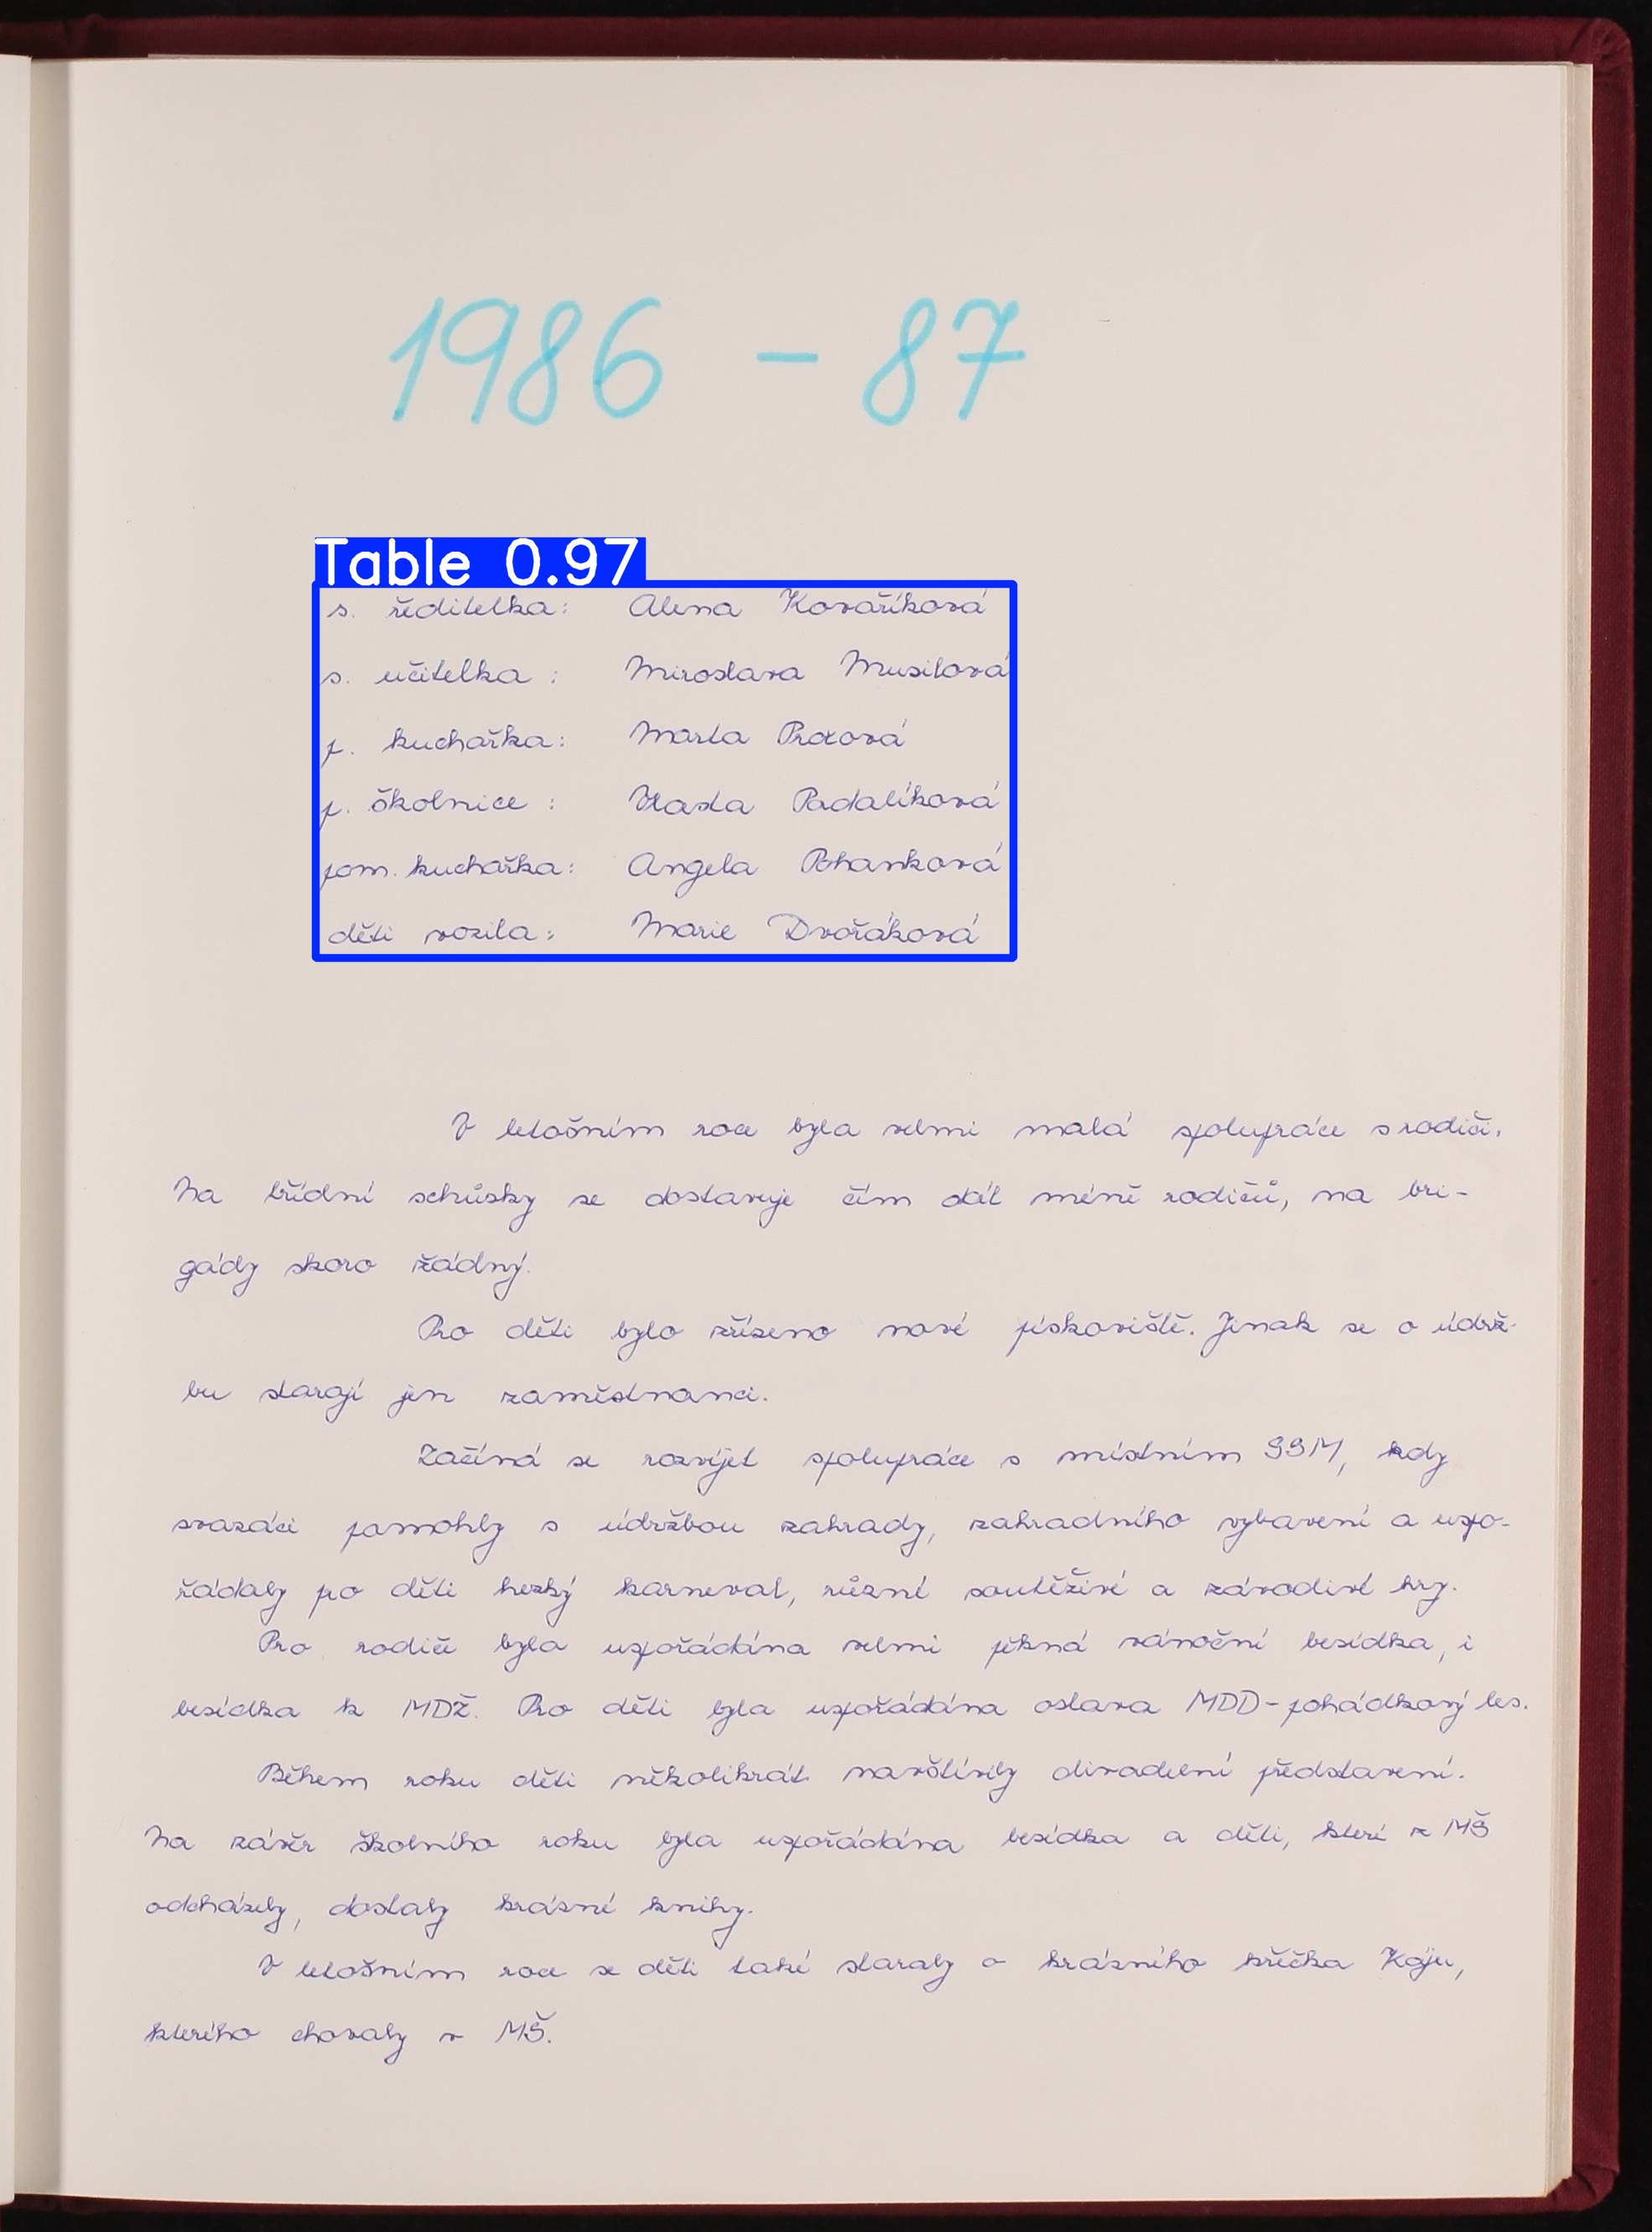 1986 - 87
Table 0.97
s. ředitelka: Alena Kovaříková
s. učitelka : Miroslava Musilová
p. kuchařka: Marta
p. školnice : Vlasta Padalíková
pom. kuchařka: Angela Pohanková
děti vozila: Marie Dvořáková
V letošním roce byla velmi malá spolupráce s rodiči.
Na třídní schůzky se dostavuje čím dál méně rodičů, na bri-
gády skoro žádný.
Pro děti bylo zřízeno nové pískoviště. Jinak se o údrž-
bu starají jen zaměstnanci.
Začíná se rozvíjet spolupráce s místním SSM, kdy
svazáci pomohly s údržbou zahrady, zahradního vybavení a uspo-
řádaly po děti hezký karneval, různé soutěživé a závodivé hry.
Pro rodiče byla uspořádána velmi pěkná vánoční besídka, i
besídka k MDŽ. Pro děti byla uspořádána oslava MDD - pohádkový les.
Během roku děti několikrát navštívily divadelní představení.
Na závěr školního roku byla uspořádána besídka a děti, které z MŠ
odcházely, dostaly krásné knihy.
V letošním roce se děti také staraly o krásného křečka Káju,
kterého chovaly v MŠ.